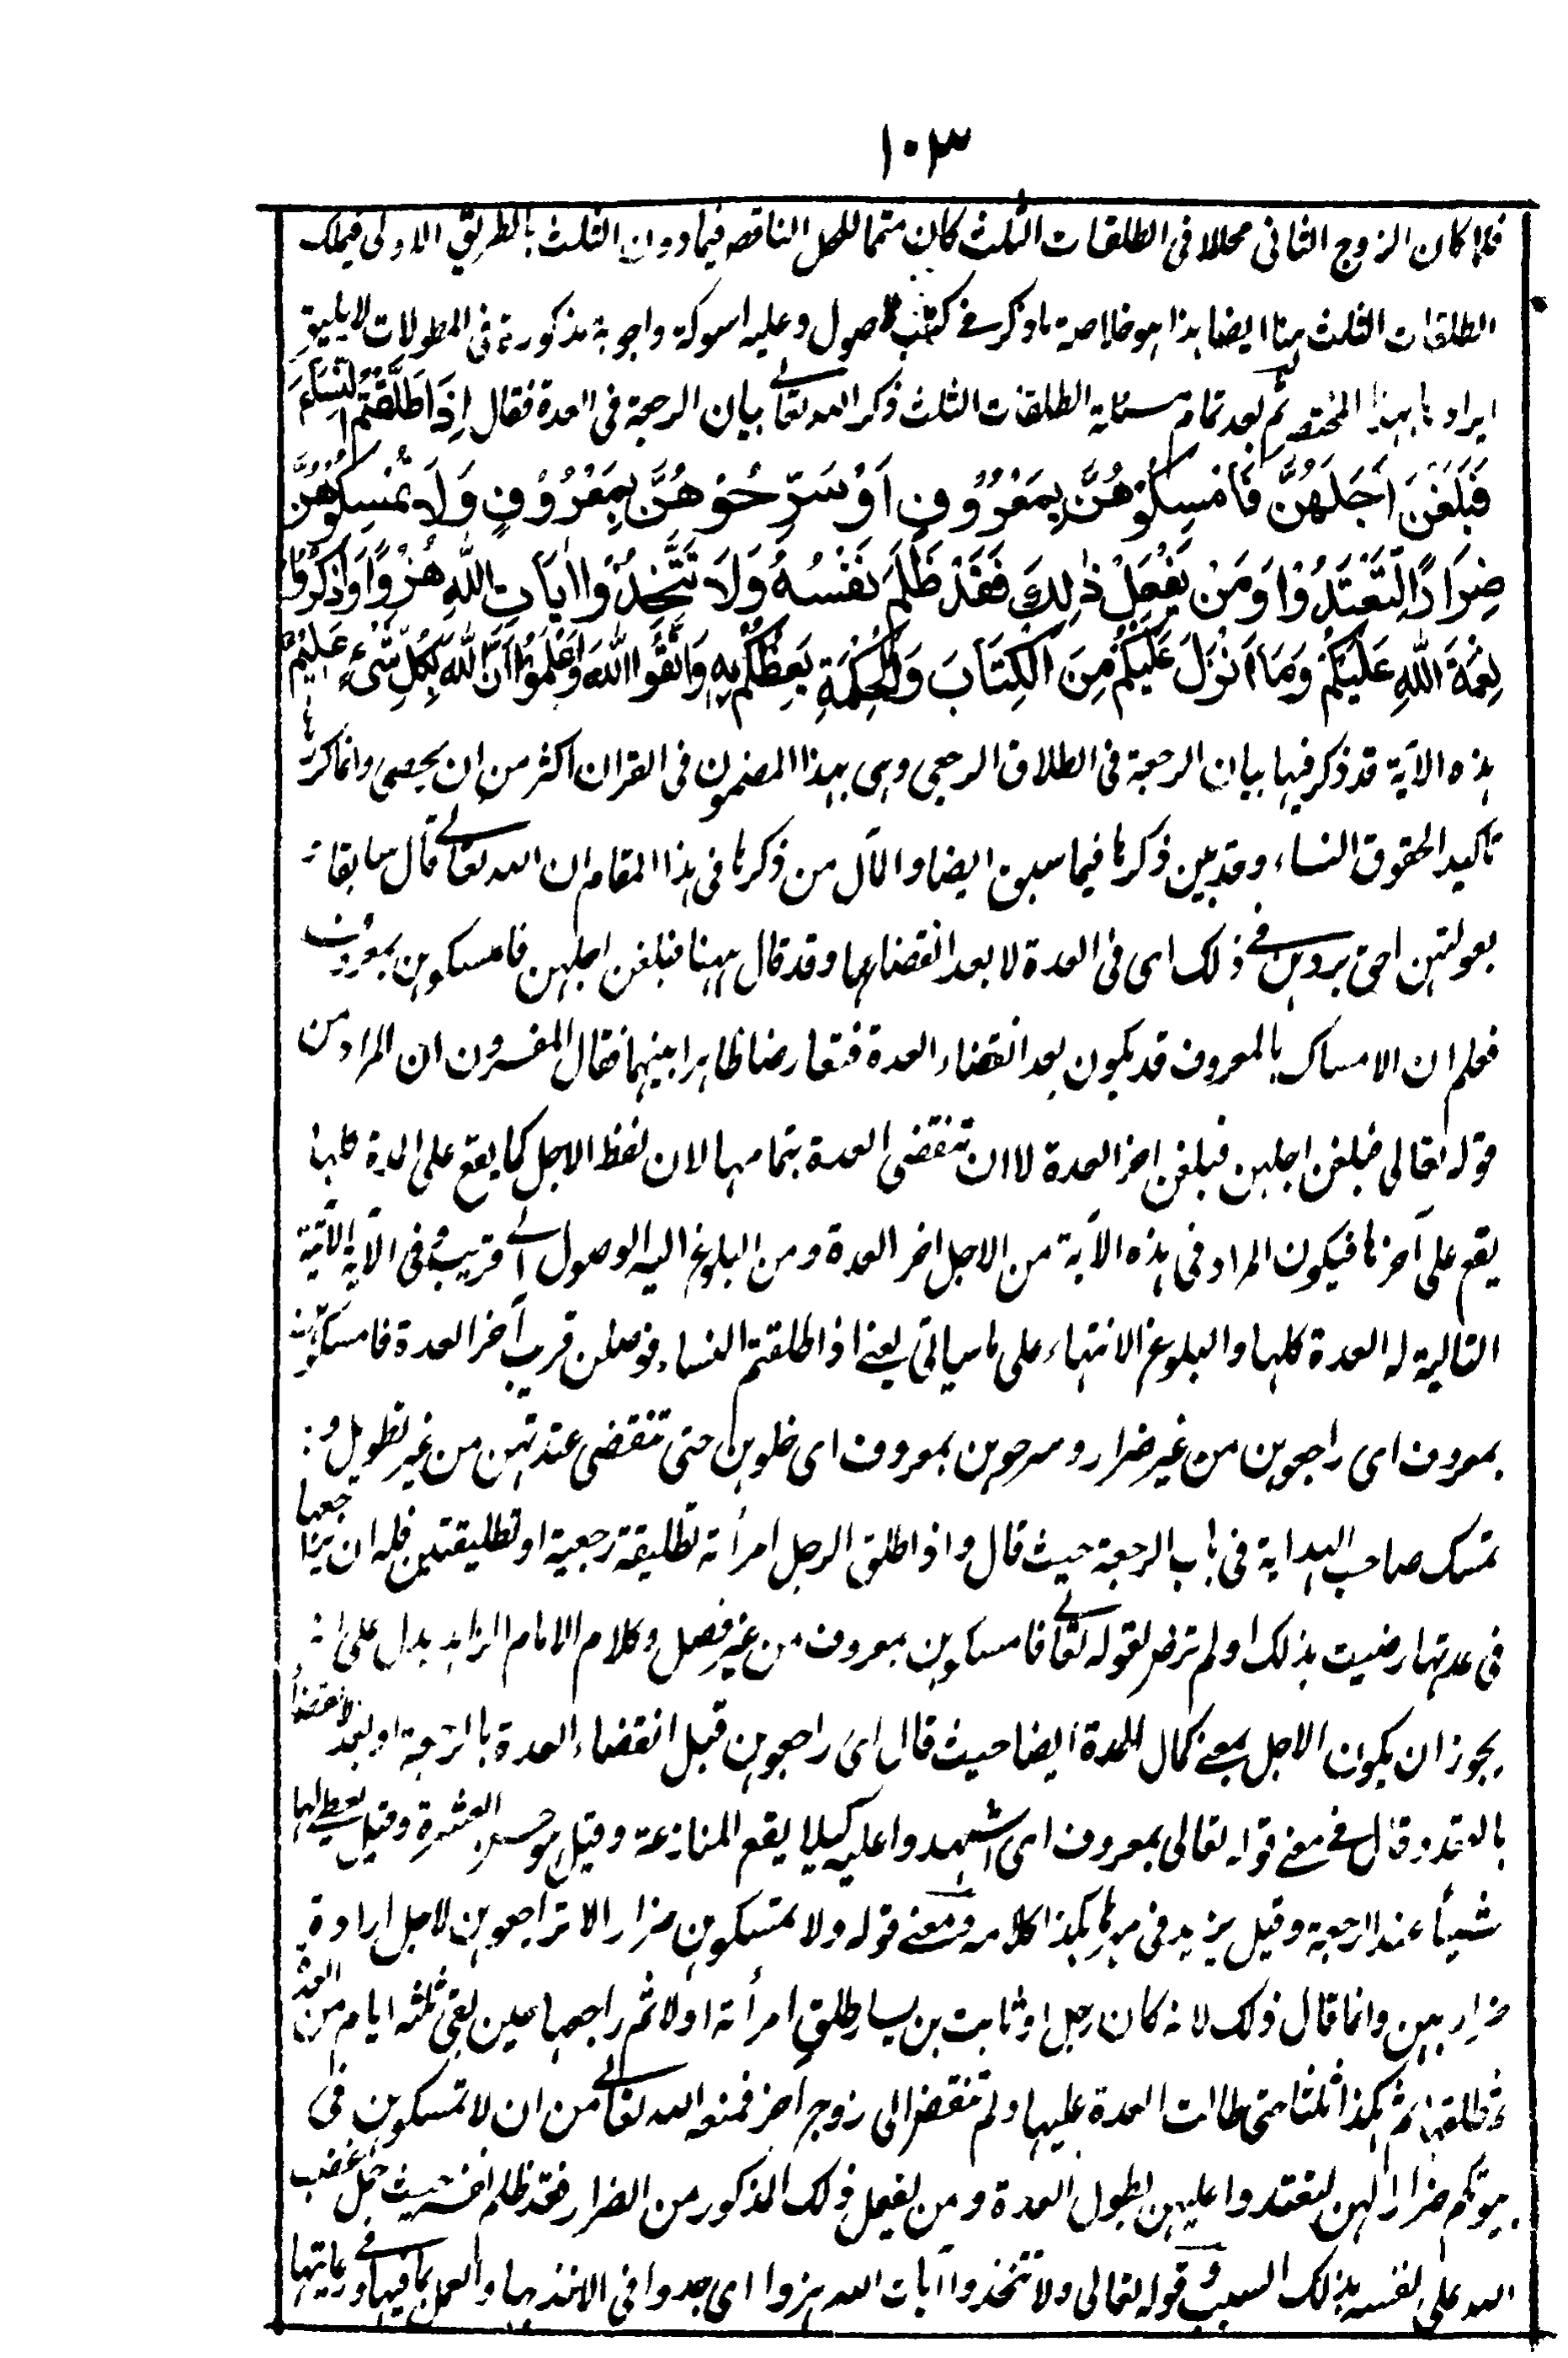 ١٠٣
فلما كان الزوج الثانى محللا فى الطلقات الثلث كان متمما للحل الناقصه فيما دون الثلث بالطريق الاولى فيملك
الطلقات الثلث هنا ايضا هذا هو خلاصة ما ذكر فے كتب الاصول وعليه اسولة واجوبة مذكورة فى المطولات لا يليق
ايرادها بهذا المختصر ثم بعد تمام مسئلة الطلقات الثلث ذكر الله تعالے بيان الرجعة فى العدة فقال اِذَا طَلَّقْتُمُ النِّسَاءَ
فَبَلَغْنَ اَجَلَهُنَّ فَاَمْسِكُوْهُنَّ بِمَعْرُوْفٍ اَوْ سَرِّحُوْهُنَّ بِمَعْرُوْفٍ وَلَا تُمْسِكُوْهُنَّ
ضِرَارًا لِّتَعْتَدُوْا وَمَنْ يَّفْعَلْ ذٰلِكَ فَقَدْ ظَلَمَ نَفْسَهُ وَلَا تَتَّخِذُوْا اٰيَاتِ اللّٰهِ هُزُوًا وَاذْكُرُوْا
نِعْمَةَ اللّٰهِ عَلَيْكُمْ وَمَا اَنْزَلَ عَلَيْكُمْ مِنَ الْكِتَابَ وَالْحِكْمَةِ يَعِظُكُمْ بِهِ وَاتَّقُوا اللّٰهَ وَاعْلَمُوْا اَنَّ اللّٰهَ بِكُلِّ شَىْءٍ عَلِيْمٌ
هذه الآية قد ذكر فيها بيان الرجعة فى الطلاق الرجعى وهى بهذا المضمون فى القران اكثر من ان يحصى وانما كررها
تاكيدا لحقوق النساء وقد بين ذكرها فيما سبق ايضا والمآل من ذكرها فى هذا المقام ان الله تعالے قال سابقا
بعولتهن احق بردهن فے ذلك اى فى العدة لا بعد انقضائها وقد قال ههنا فبلغن اجلهن فامسكوهن بمعروف
فعلم ان الامساك بالمعروف قد يكون بعد انقضاء العدة فتعارضا ظاهرا بينهما فقال المفسرون ان المراد من
قوله تعالى فبلغن اجلهن فبلغن اخر العدة لا ان تنقضى العدة بتمامها لان لفظ الاجل كما يقع على المدة كلها
يقع على آخرها فيكون المراد فى هذه الآية من الاجل اخر العدة ومن البلوغ اليه الوصول الے قريب وفى الآية الآتية
التالية له العدة كلها والبلوغ الانتهاء على ما سياتى يعنے اذا طلقتم النساء فوصلن قرب آخر العدة فامسكوهن
بمعروف اى راجعوهن من غير ضرار وسرحوهن بمعروف اى خلوهن حتى تنقضى عدتهن من غير تطويل و:
تمسك صاحب الهداية فى باب الرجعة حيث قال واذا طلق الرجل امرأته تطليقة رجعية او تطليقتين فله ان يراجعها
فى عدتها رضيت بذلك او لم ترض لقوله تعالے فامسكوهن بمعروف من غير فصل وكلام الامام الزاهد يدل على انه
يجوز ان يكون الاجل بمعنے كمال المدة ايضا حيث قال اى راجعوهن قبل انقضاء العدة بالرجعة او بعد انقضائها
بالعقد وقال فے معنے قوله تعالى بمعروف اى اشهدوا عليه كيلا يقع المنازعة وقيل هو حسن العشرة وقيل يعطے لها
شيئا عند الرجعة وقيل يزيد فى مهرها هكذا كلامه ومعنے قوله ولا تمسكوهن ضرارا لا تراجعوهن لاجل ارادة
ضرار بهن وانما قال ذلك لانه كان رجل او ثابت بن يسار طلق امرأته اولا ثم راجعها حين بقى ثلثه ايام من العدة
ثم طلقها ثم هكذا ثلثا حتى طالت العدة عليها ولم تنقض الى زوج آخر فمنعه الله تعالے من ان لا تمسكوهن فى
بيوتكم ضرارا لهن لتعتدوا عليهن بطول العدة ومن يفعل ذلك المذكور من الضرار فقد ظلم نفسه حيث جعل غضب
الله على نفسه بذلك السبب و قوله تعالى ولا تتخذوا آيات الله هزوا اى جدوا فى الاخذ بها والعمل بما فيها ورعايتها